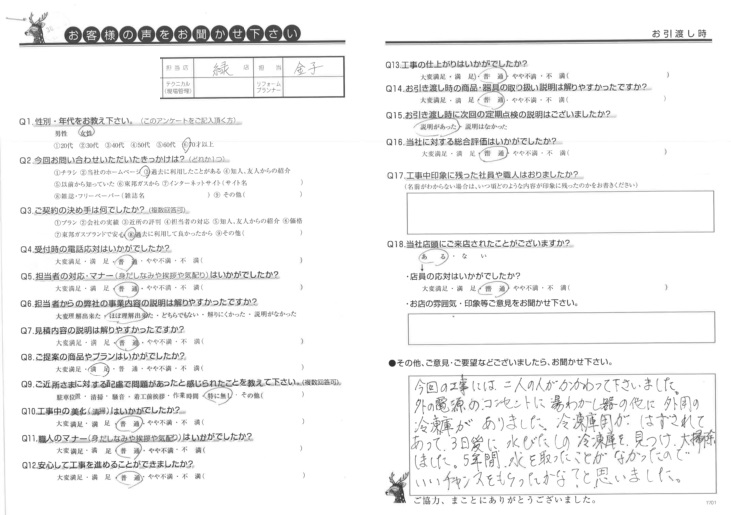 お客様の声をお聞かせ下さい
担当店 緑 店 担当 金子
テクニカル(現場管理) リフォームプランナー
Q1.性別・年代をお教え下さい。(このアンケートをご記入頂く方)
男性 女性
①20代 ②30代 ③40代 ④50代 ⑤60代 ⑥70才以上
Q2.今回お問い合わせいただいたきっかけは?(どれか1つ)
①チラシ ②当社のホームページ ③過去に利用したことがある ④知人、友人からの紹介
⑤以前から知っていた ⑥東邦ガスから ⑦インターネットサイト(サイト名 )
⑧雑誌・フリーペーパー(雑誌名 ) ⑨その他( )
Q3.ご契約の決め手は何でしたか?(複数回答可)
①プラン ②会社の実績 ③近所の評判 ④担当者の対応 ⑤知人、友人からの紹介 ⑥価格
⑦東邦ガスブランドで安心 ⑧過去に利用して良かったから ⑨その他( )
Q4.受付時の電話応対はいかがでしたか?
大変満足・満足・普通・やや不満・不満( )
Q5.担当者の対応・マナー(身だしなみや挨拶や気配り)はいかがでしたか?
大変満足・満足・普通・やや不満・不満( )
Q6.担当者からの弊社の事業内容の説明は解りやすかったですか?
大変理解出来た・ほぼ理解出来た・どちらでもない・解りにくかった・説明がなかった
Q7.見積内容の説明は解りやすかったですか?
大変満足・満足・普通・やや不満・不満( )
Q8.ご提案の商品やプランはいかがでしたか?
大変満足・満足・普通・やや不満・不満( )
Q9.ご近所さまに対する配慮で問題があったと感じられたことを教えて下さい。(複数回答可)
駐車位置・清掃・騒音・着工前挨拶・作業時間・特に無し・その他( )
Q10.工事中の美化(清掃)はいかがでしたか?
大変満足・満足・普通・やや不満・不満( )
Q11.職人のマナー(身だしなみや挨拶や気配り)はいかがでしたか?
大変満足・満足・普通・やや不満・不満( )
Q12.安心して工事を進めることができましたか?
大変満足・満足・普通・やや不満・不満( )
お引渡し時
Q13.工事の仕上がりはいかがでしたか?
大変満足・満足・普通・やや不満・不満( )
Q14.お引き渡し時の商品・器具の取り扱い説明は解りやすかったですか?
大変満足・満足・普通・やや不満・不満( )
Q15.お引き渡し時に次回の定期点検の説明はございましたか?
説明があった・説明はなかった
Q16.当社に対する総合評価はいかがでしたか?
大変満足・満足・普通・やや不満・不満( )
Q17.工事中印象に残った社員や職人はおりましたか?
(名前がわからない場合は、いつ頃どのような内容が印象に残ったのかをお書きください)
Q18.当社店頭にご来店されたことがございますか?
ある・ない
・店員の応対はいかがでしたか?
大変満足・満足・普通・やや不満・不満( )
・お店の雰囲気・印象等ご意見をお聞かせ下さい。
●その他、ご意見・ご要望などございましたら、お聞かせ下さい。
今回の工事には、二人の人がかかわって下さいました。
外の電源のコンセントに湯わかし器の他に外用の
冷凍庫がありました。冷凍庫用がはずされて
あって、3日後に水びたしの冷凍庫を見つけ、大掃除
しました。5年間、水を取ったことがなかったので
いいチャンスをもらったかな?と思いました。
ご協力、まことにありがとうございました。